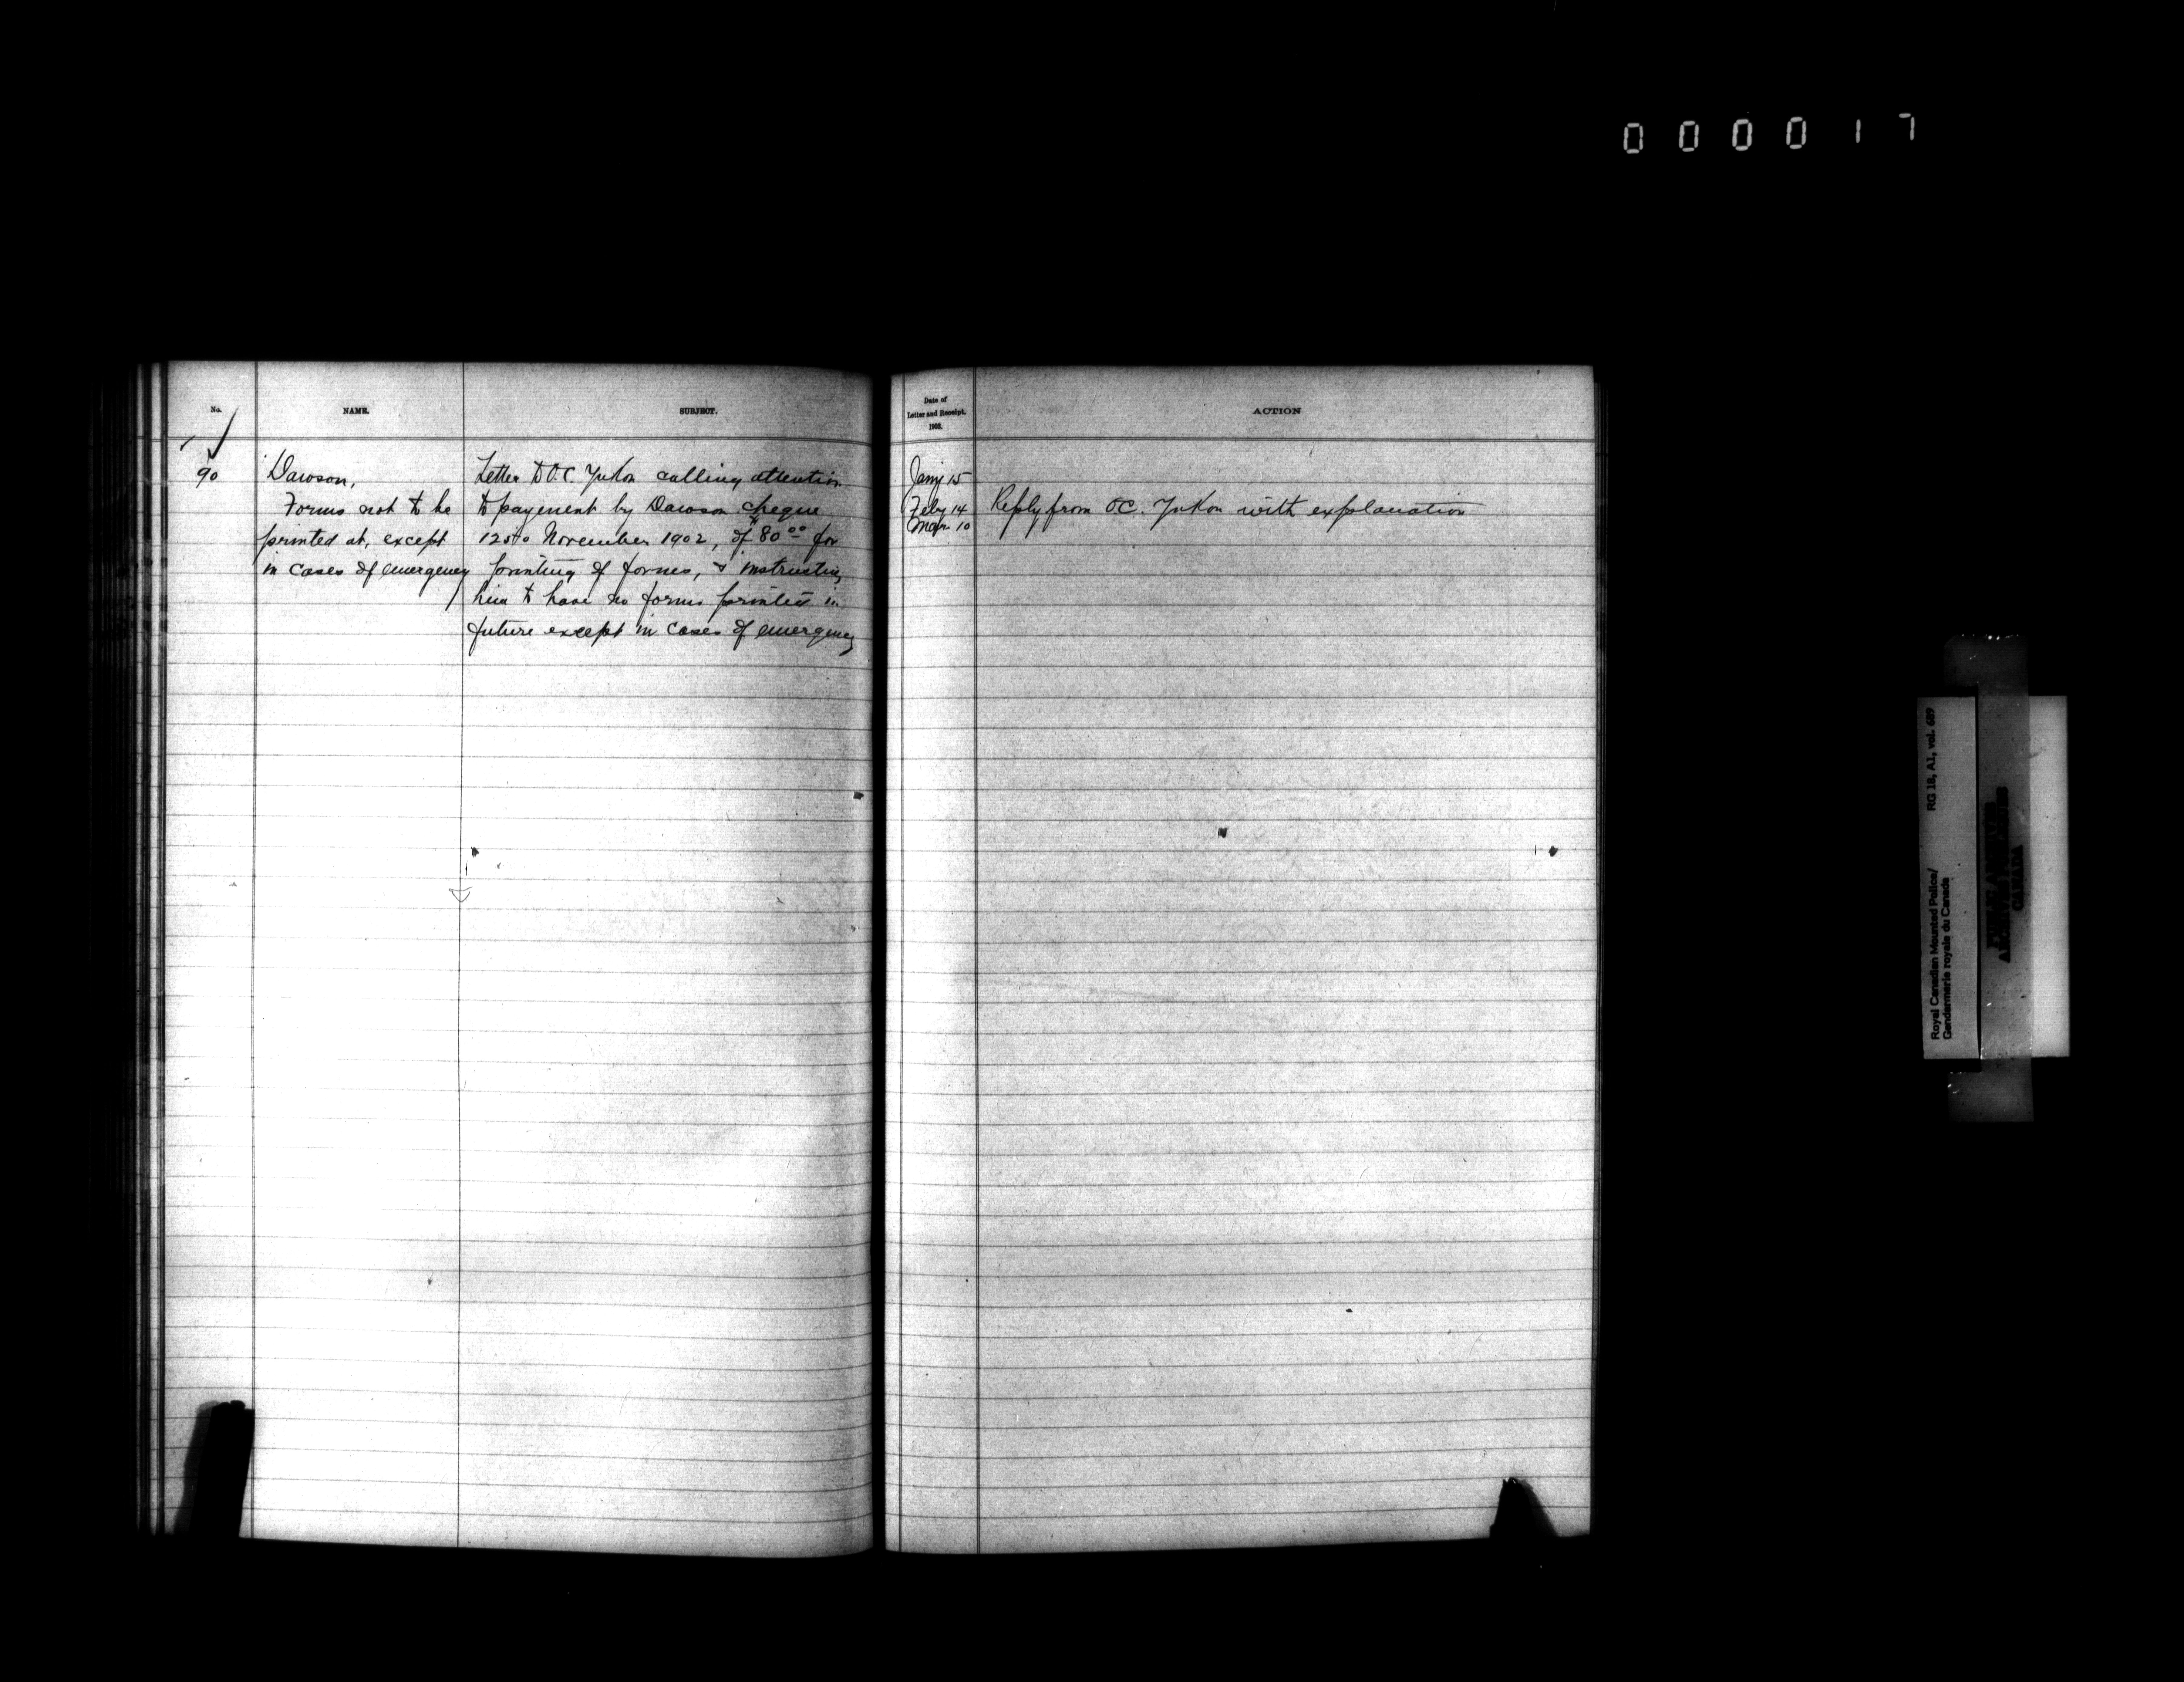 0 0 0 0 1 7
No.
NAME.
SUBJECT.
90
Dawson,
Forms not to be
printed at, except
in cases of emergency
Letter to O.C. Yukon calling attention
to payment by Dawson cheque
November 1902, of $80.00 for
printing of forms, & instructing
him to have no forms printed in
future except in cases of emergency
Date of
Letter and Receipt.
1903.
ACTION
Jany 15
Feby 14
Mar. 10
Reply from OC. Yukon with explanation
Royal Canadian Mounted Police/
Gendarmerie royale du Canada
RG 18, A1, vol. 689
PUBLIC ARCHIVES
ARCHIVES PUBLIQUES
CANADA